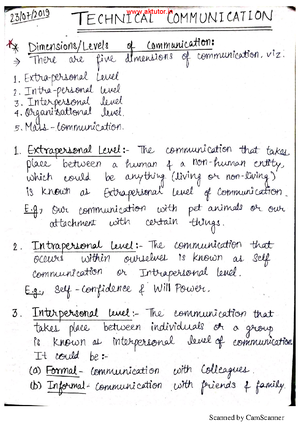 www.aktutor.in
23/07/2019
TECHNICAL COMMUNICATION
* Dimensions/Levels of Communication:
→ There are five dimensions of communication, viz.
1. Extra-personal Level
2. Intra-personal Level
3. Interpersonal Level
4. Organizational Level
5. Mass-Communication.
1. Extrapersonal Level:- The communication that takes
place between a human & a non-human entity,
which could be anything (living or non-living)
is known as Extrapersonal level of communication.
E.g., Our communication with pet animals or our
attachment with certain things.
2. Intrapersonal Level:- The communication that
occurs within ourselves is known as Self
Communication or Intrapersonal level.
E.g., Self-Confidence & Will Power.
3. Interpersonal Level:- The communication that
takes place between individuals or a group
is known as interpersonal level of communication.
It could be:-
(a) Formal- communication with Colleagues.
(b) Informal- communication with friends & family.
Scanned by CamScanner